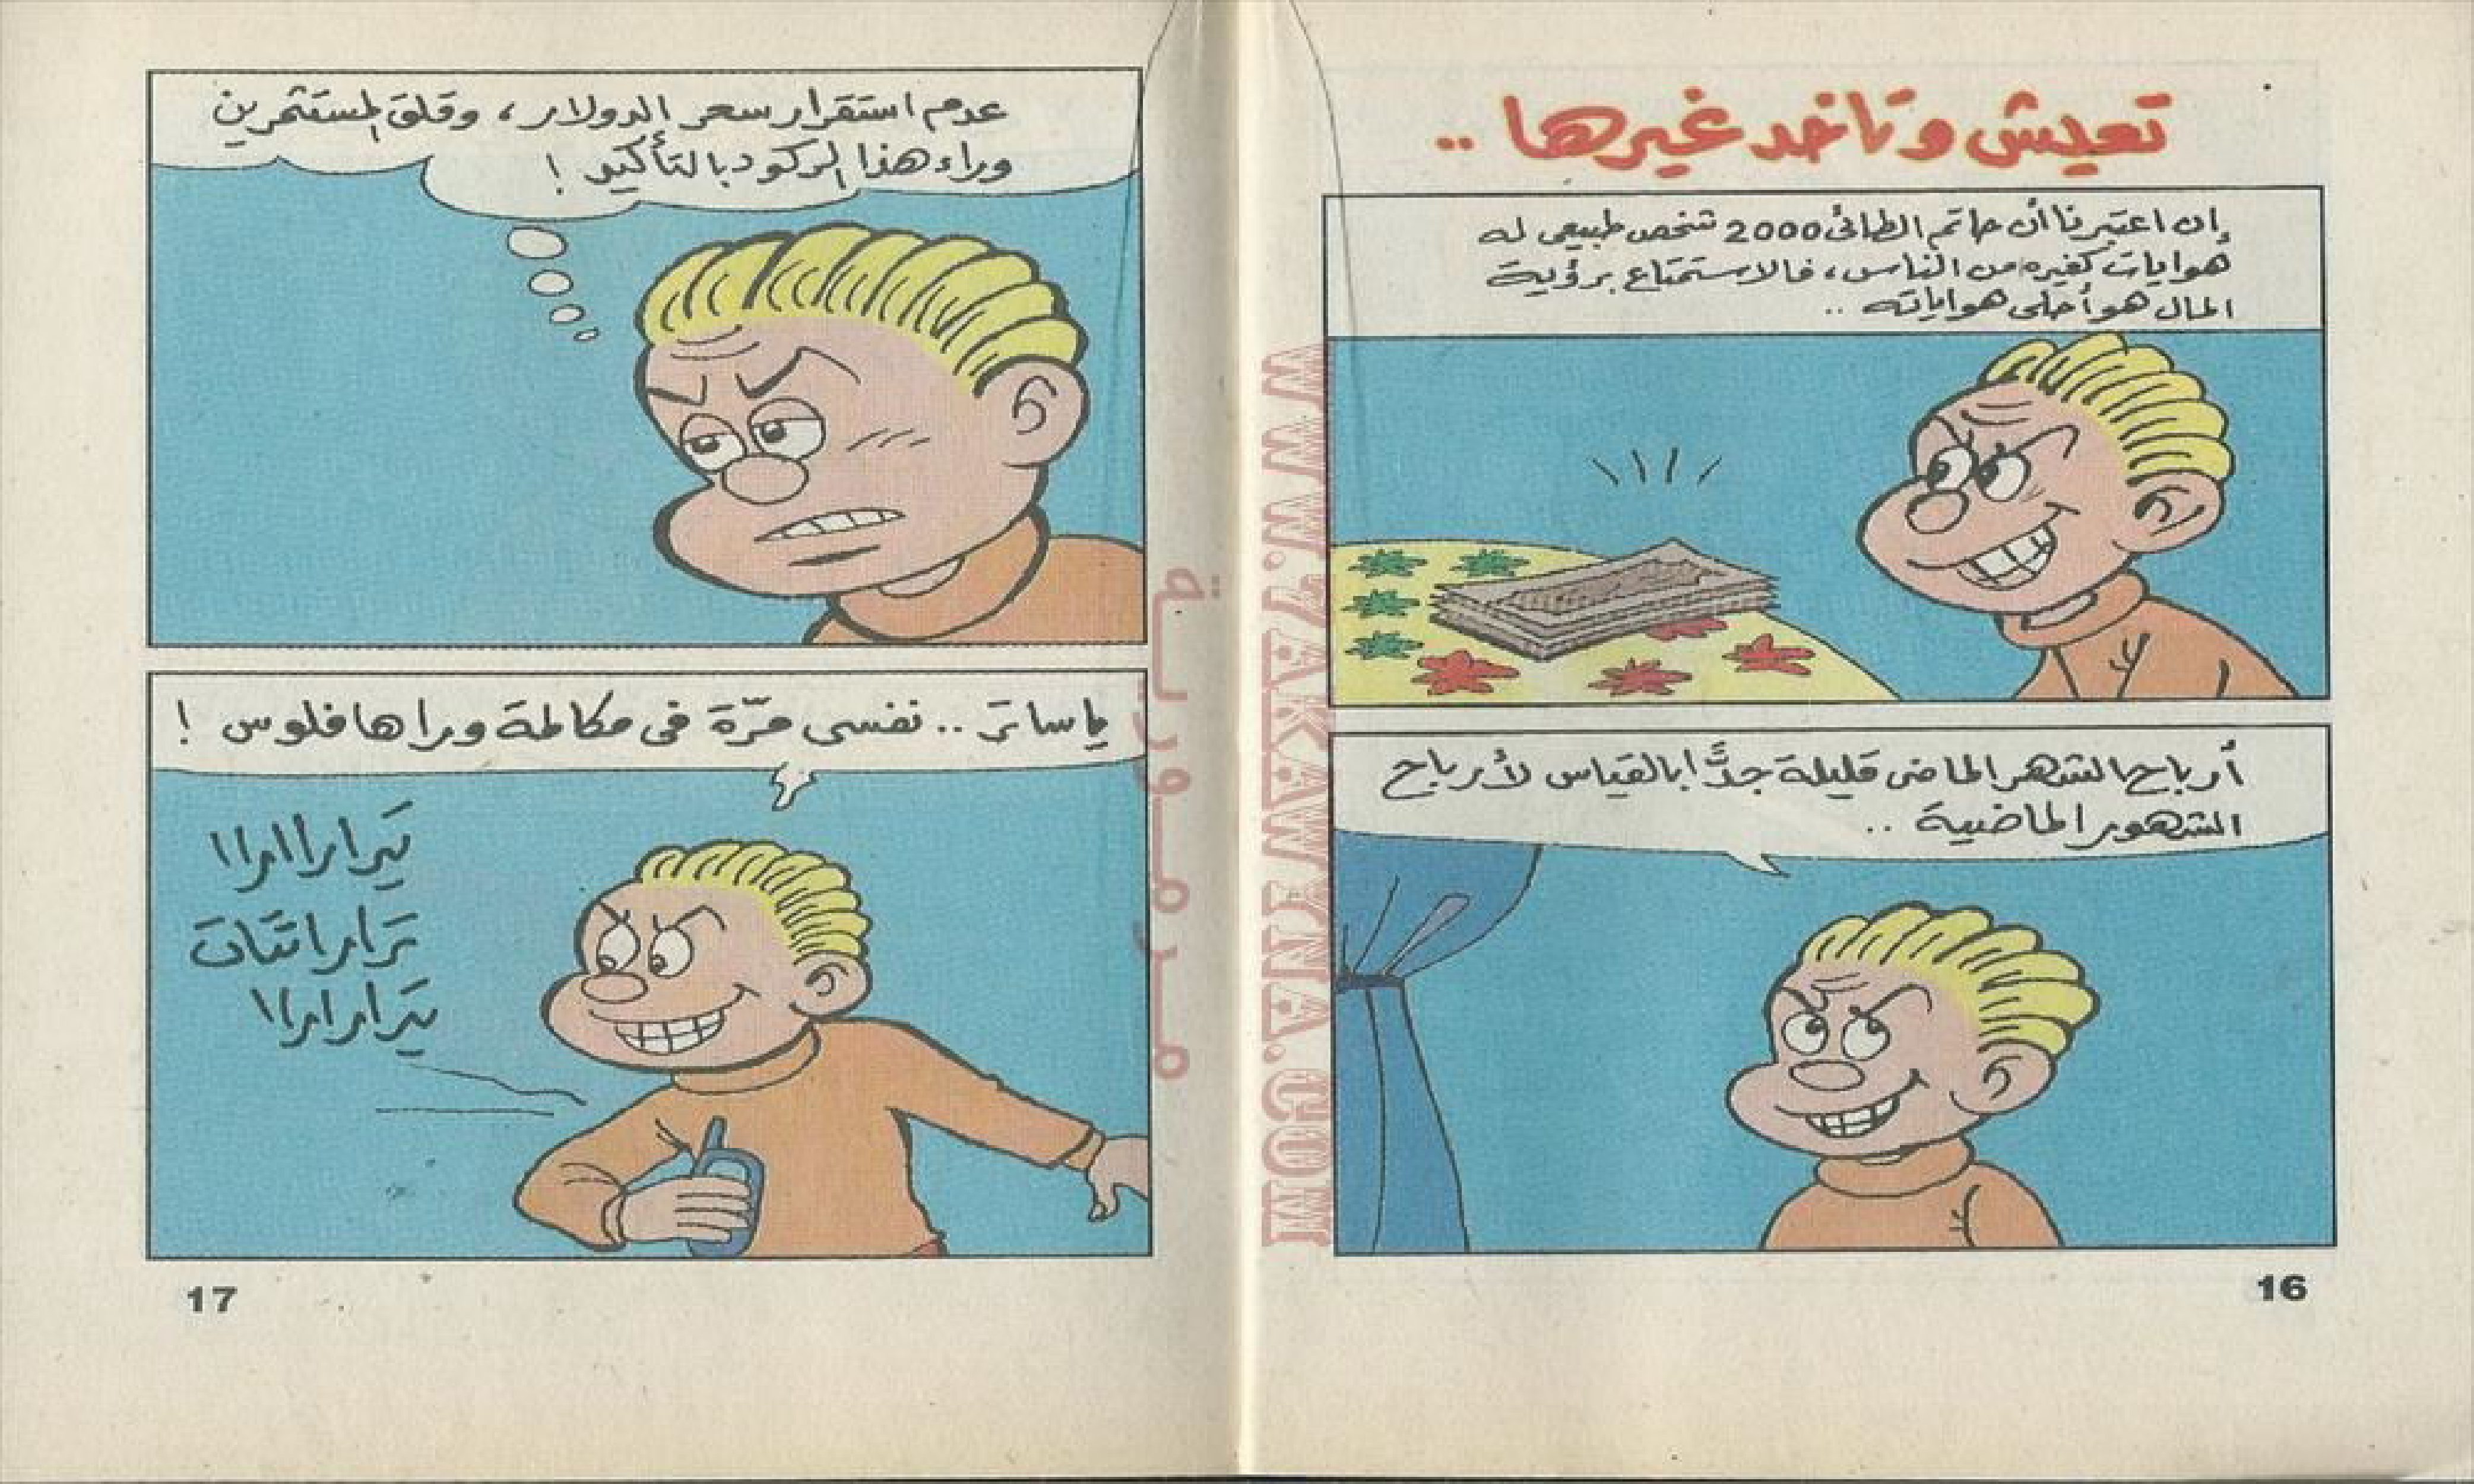 تعيش وتاخد غيرها ..
إن اعتبرنا أن حاتم الطائى 2000 شخص طبيعى له
هوايات كغيره من الناس، فالاستمتاع برؤية
المال هو أحلى هواياته ..
أرباح الشهر الماضى قليلة جدًّا بالقياس لأرباح
الشهور الماضية ..
16
عدم استقرار سعر الدولار، وقلق المستثمرين
وراء هذا الركود بالتأكيد !
ياساتر .. نفسى مرّة فى مكالمة وراها فلوس !
تيرارااارا
ترارراتتات
تيراراررا
17
WWW.7AKAWYINA.COM
مدرموريـة